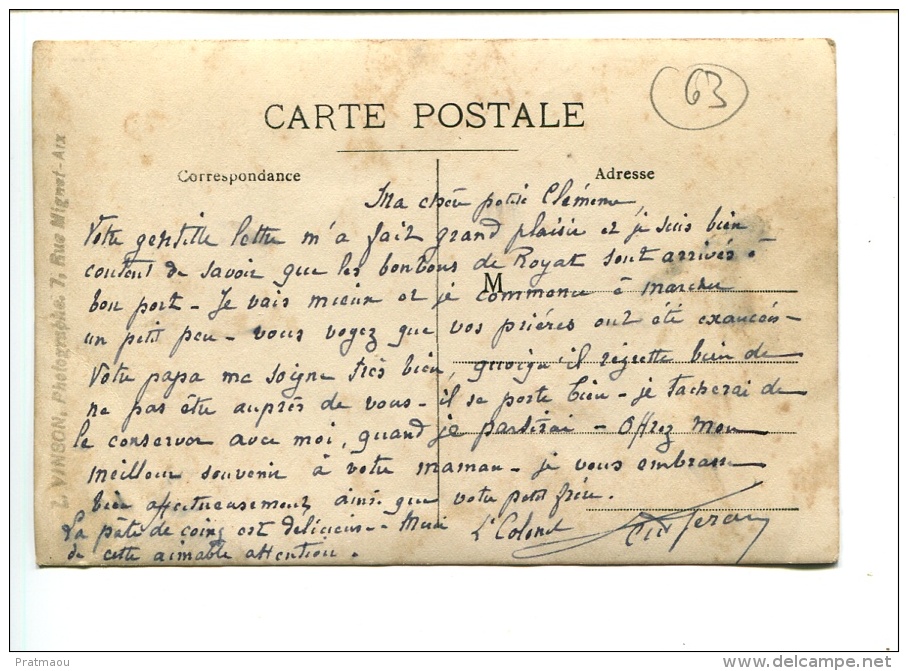 63
CARTE POSTALE
Correspondance
Adresse
Ma chère petite Clémence,
Votre gentille lettre m'a fait grand plaisir et je suis bien
content de savoir que les bonbons de Royat sont arrivés à
bon port - Je vais mieux et je commence à marcher
M
un petit peu - vous voyez que vos prières ont été exaucées -
Votre papa me soigne très bien, quoiqu'il regrette bien de
ne pas être auprès de vous - il se porte bien - je tacherai de
le conserver avec moi, quand je partirai - Offrez mon
meilleur souvenir à votre maman - je vous embrasse
bien affectueusement, ainsi que votre petit frère.
La pâte de coing est délicieuse - Merci
de cette aimable attention.
Lt Colonel
L. VINSON, Photographe. 7, Rue Mignet-Aix
Pratmaou
www.delcampe.net